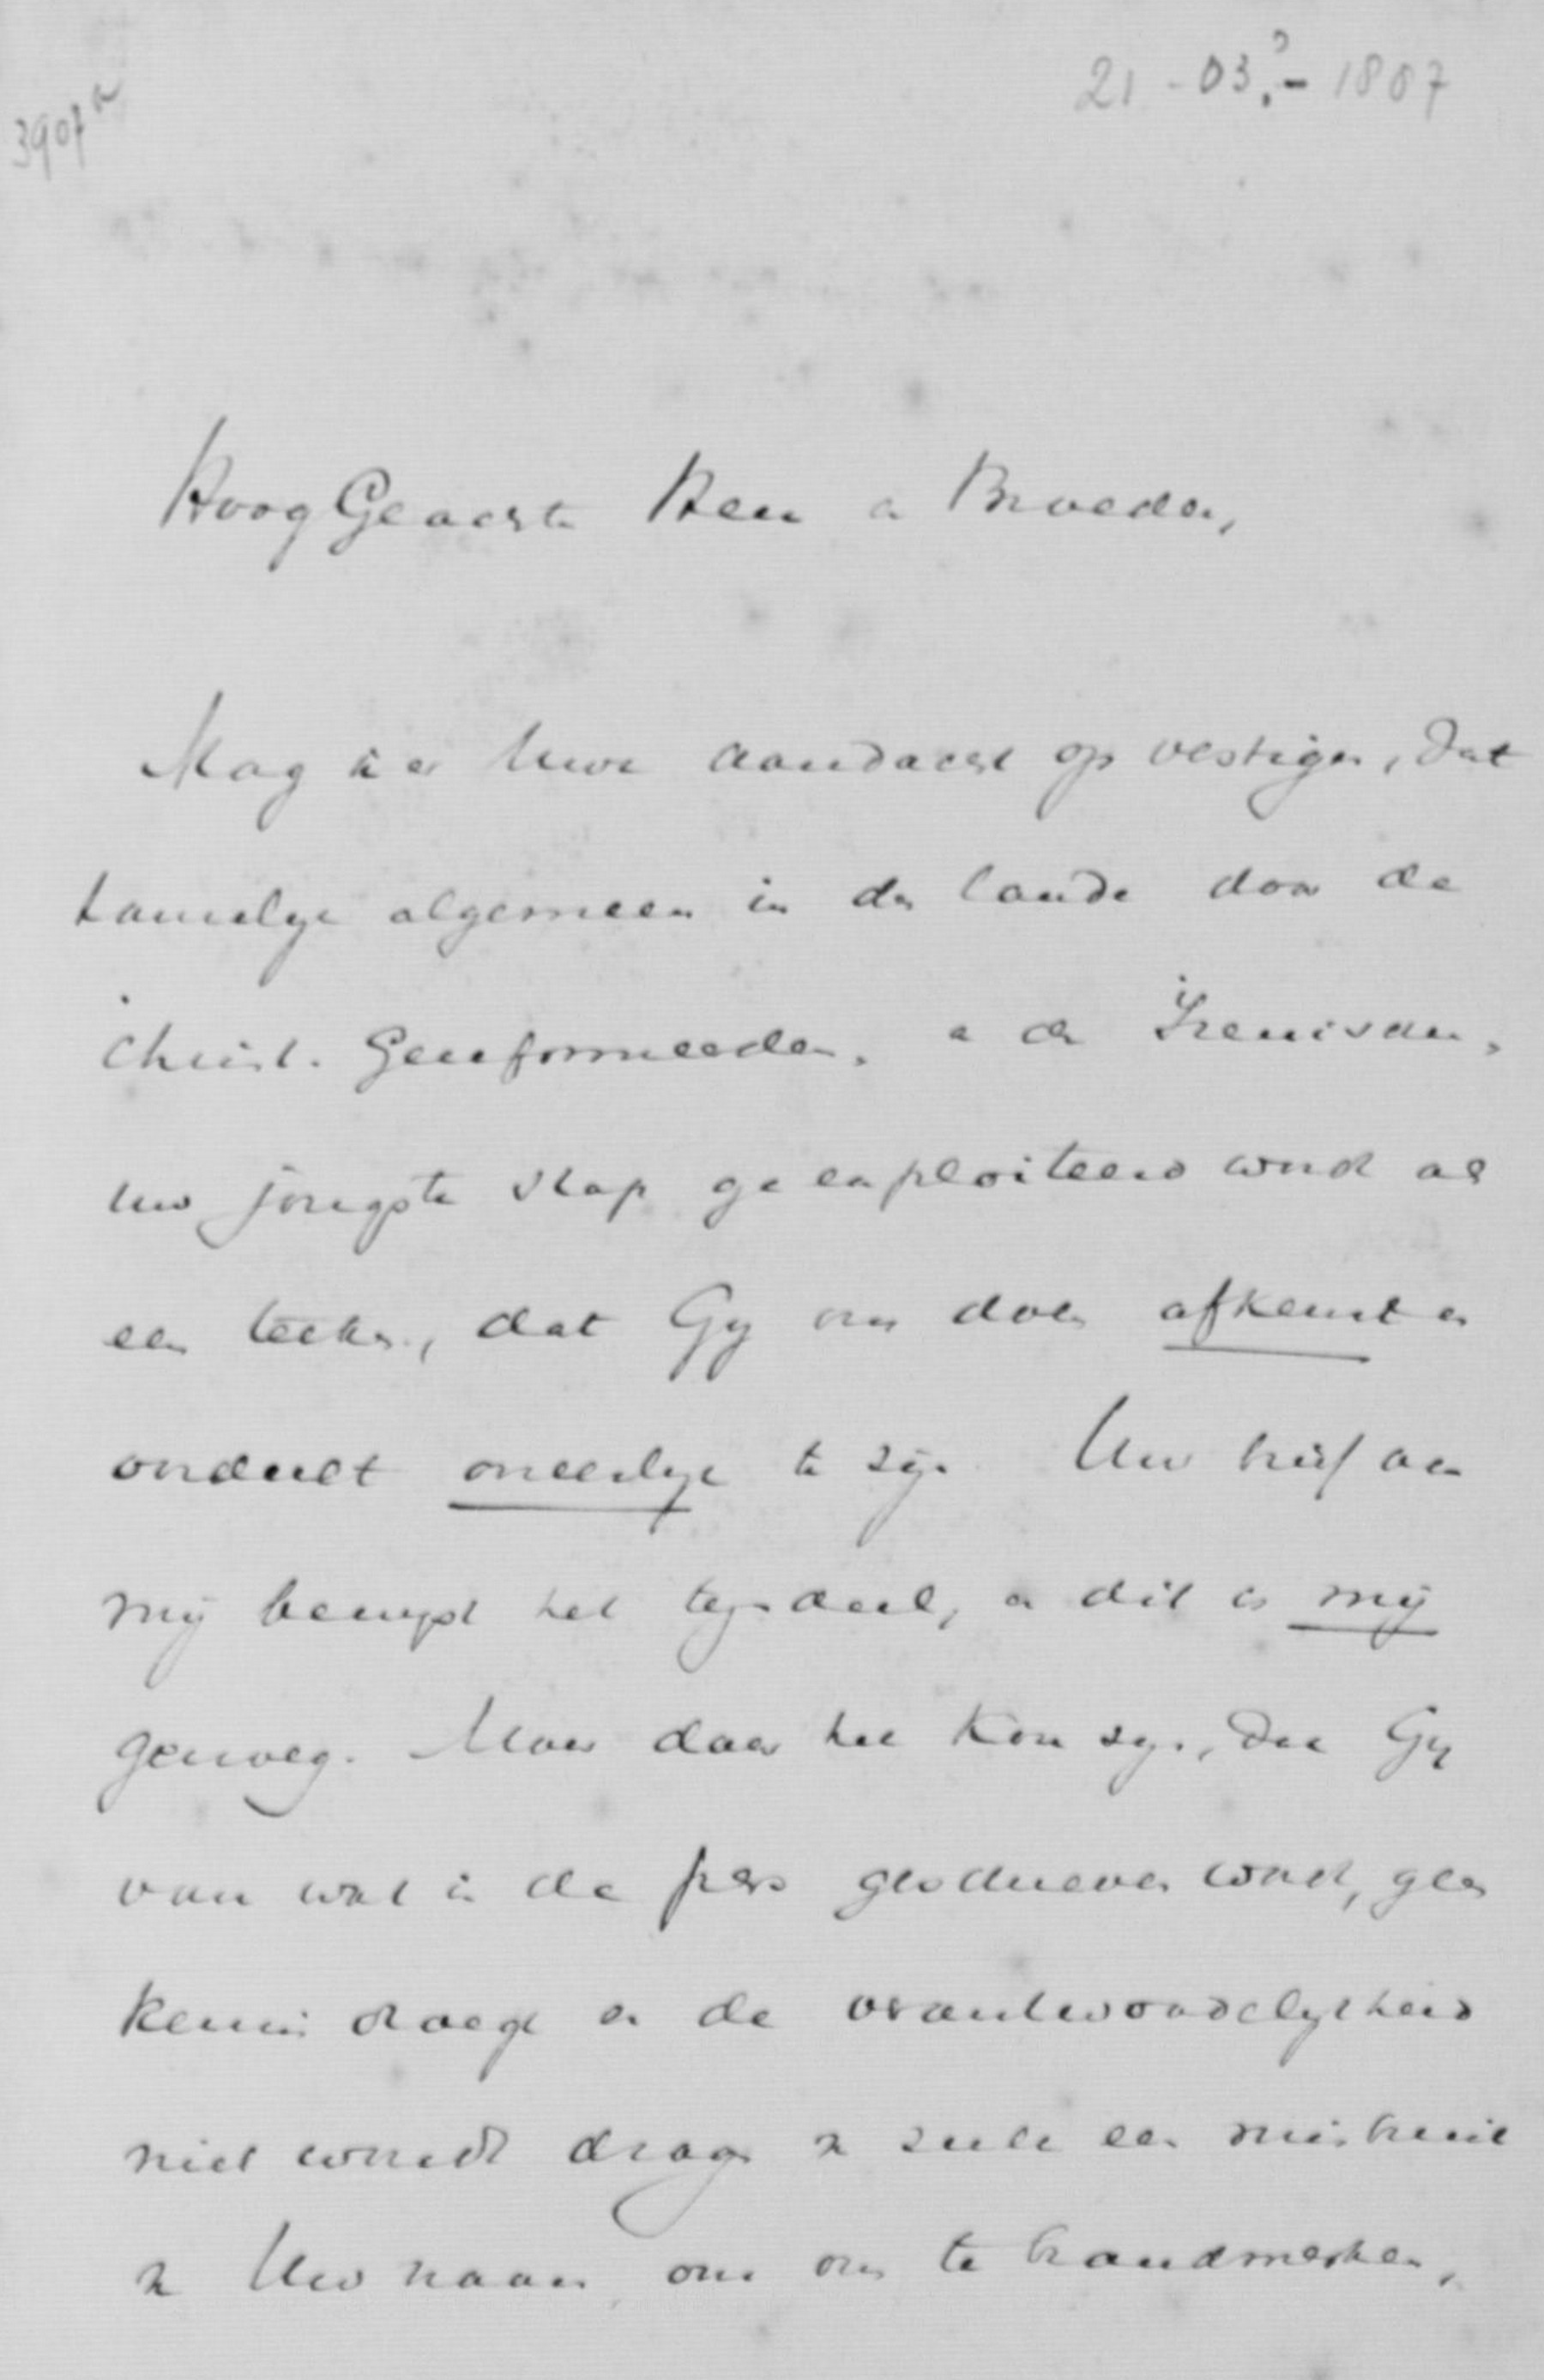 21-03?-1887
3907a
HoogGeachte Heer en Broeder,
Mag ik er Uwe aandacht op vestigen, dat
tamelyk algemeen in den lande door de
Christ. Gereformeerden, en de Irenischen,
uw jongste stap geexploiteerd wordt als
een teeken, dat Gy ons doen afkeurt en
oordeelt oneerlyk te zyn. Uw brief aan
mij bewyst het tegendeel, en dit is mij
genoeg. Maar daar het kon zyn, dat Gy
van wat in de pers geschreven wordt, geen
kennis draagt en de verantwoordelykheid
niet wenscht te dragen
Uw naam, om ons te brandmerken,